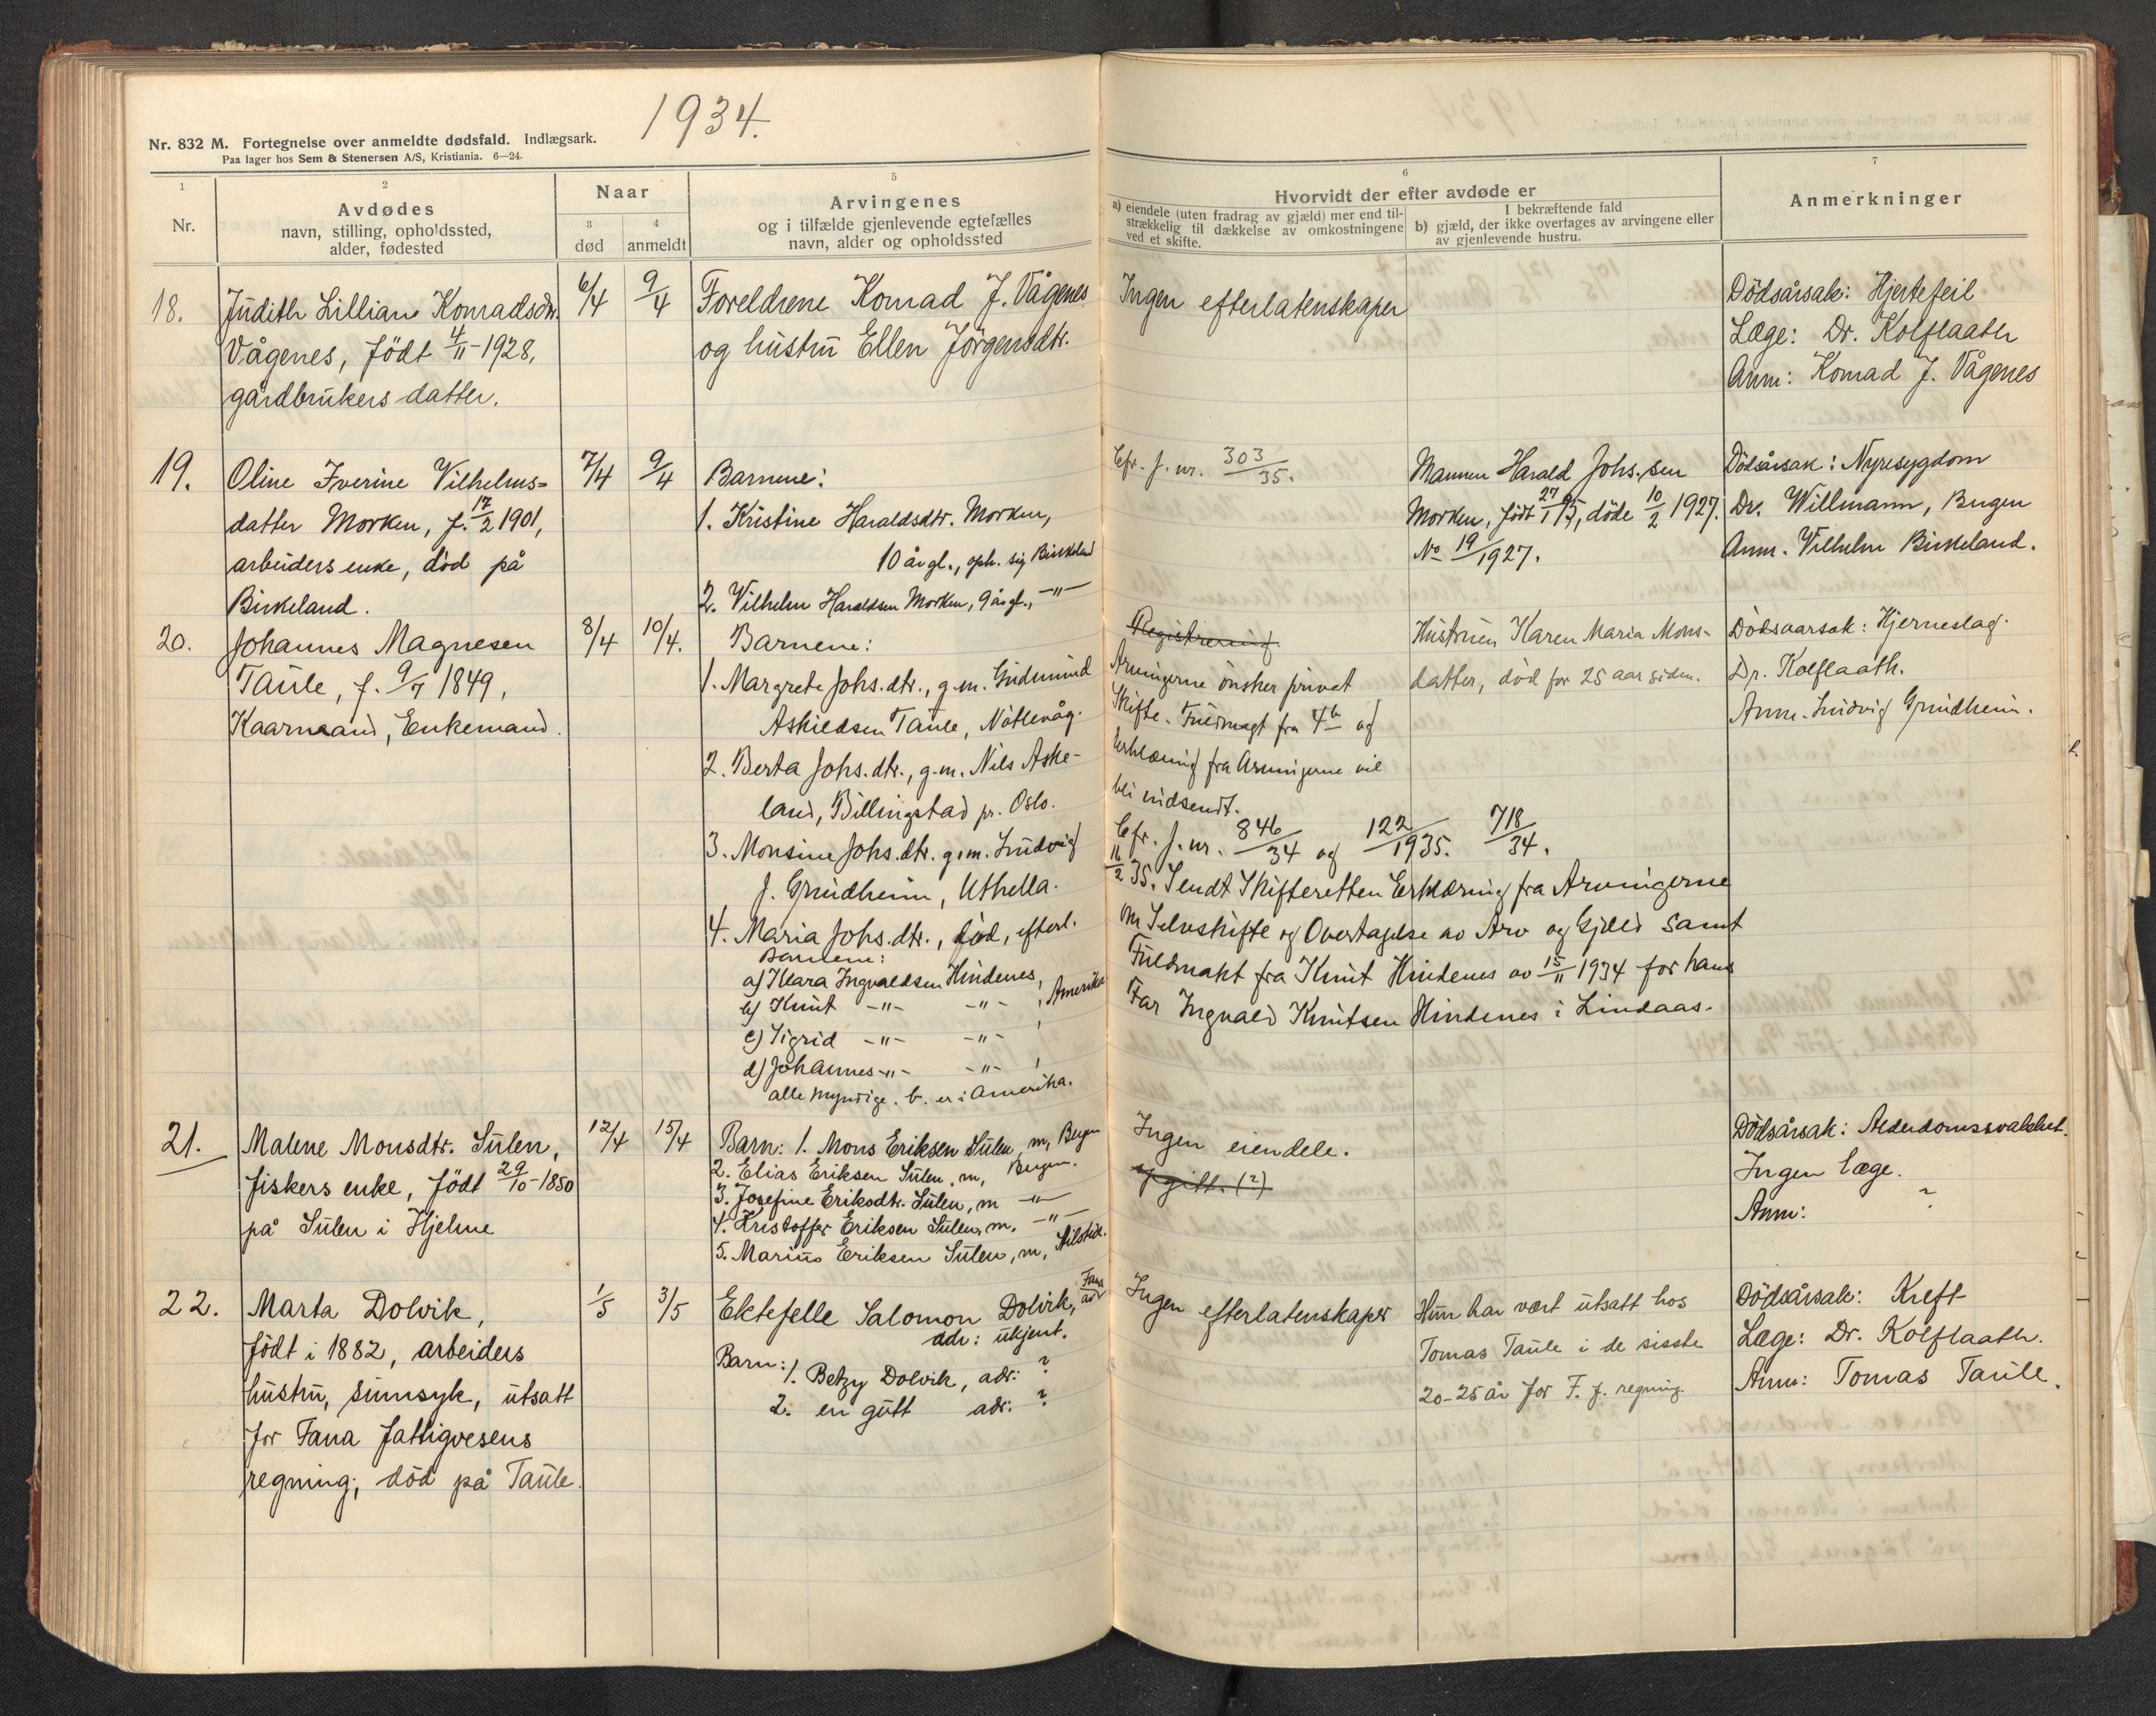 1934.
Nr. 832 M. Fortegnelse over anmeldte dødsfald. Indlægsark.
Paa lager hos Sem & Stenersen A/S, Kristiania. 6—24.
1
Nr.
2
Avdødes
navn, stilling, opholdssted,
alder, fødested
Naar
3
død
4
anmeldt
5
Arvingenes
og i tilfælde gjenlevende egtefælles
navn, alder og opholdssted
6
Hvorvidt der efter avdøde er
a) eiendele (uten fradrag av gjæld) mer end til-
strækkelig til dækkelse av omkostningene
ved et skifte.
I bekræftende fald
b) gjæld, der ikke overtages av arvingene eller
av gjenlevende hustru.
7
Anmerkninger
18.
Judith Lilliane Konradsdtr.
Vågenes, født 4/11-1928,
gårdbrukers datter.
6/4
9/4
Foreldrene Konrad J. Vågenes
og hustru Ellen Jörgensdtr.
Ingen efterlatenskaper
Dödsårsak: Hjertefeil
Læge: Dr. Kolflaath
Anm: Konrad J. Vågenes
19.
Oline Iverine Vilhelms=
datter Morken, f. 17/2 1901,
arbeiders enke, död på
Birkeland.
7/4
9/4
Barnene:
1. Kristine Haraldsdtr. Morken,
10 år gl., oph. sig Birkeland
2. Vilhelm Haraldsen Morken, 9 år gl., -"-
Cfr. j. nr. 303/35.
Mannen Harald Johs.sen
Morken, født 27/1 95, döde 10/2 1927.
No 19/1927.
Dödsårsak: Nyresygdom
Dr. Willmann, Bergen
Anm. Vilhelm Birkeland.
20.
Johannes Magnesen
Taule, f. 9/7 1849,
Kaarmand, Enkemand.
8/4
10/4.
Barnene:
1. Margrete Johs.dtr., g.m. Gudmund
Askildsen Taule, Nötlevåg.
2. Berta Johs.dtr., g.m. Nils Aske-
land, Billingstad pr. Oslo.
3. Monsine Johs.dtr. g.m. Ludvig
J. Grindheim, Uthella.
4. Maria Johs.dtr., död, efterl.
Barnene:
a) Klara Ingvaldsen Hindenes,
b) Knut -"- -"- , Amerika
c) Sigrid -"- -"- ,
d) Johannes -"- -"- ,
alle myndige. b. er i Amerika.
Registrering
Arvingerne önsker privat
Skifte. Fuldmagt fra 4b og
Erklæring fra Arvingerne vil
bli indsendt.
Cfr. j. nr. 846/34 og 122/1935. 718/34.
16/2 35. Sendt Skifteretten Erklæring fra Arvingerne
om Selvskifte og Overtagelse av Arv og Gjeld samt
Fuldmakt fra Knut Hindenes av 15/11 1934 for hans
Far Ingvald Knutsen Hindenes i Lindaas.
Hustruen Karen Maria Mons-
datter, död for 25 aar siden.
Dödsaarsak: Hjerneslag.
Dr. Kolflaath.
Anm. Ludvig Grindheim.
21.
Malene Monsdtr. Sulen,
fiskers enke, födt 29/10-1850
på Sulen i Hjelme
12/4
15/4
Barn: 1. Mons Eriksen Sulen, m, Bergen
2. Elias Eriksen Sulen, m, Bergen.
3. Josefine Eriksdtr. Sulen, m -"-
4. Kristoffer Eriksen Sulen, m. -"-
5. Marius Eriksen Sulen, m,
Ingen eiendele.
Dödsårsak: Alderdomssvakhet.
Ingen læge.
Anm: ?
22.
Marta Dolvik,
födt i 1882, arbeiders
hustru, sinnsyk, utsatt
for Fana Fattigvesens
regning; död på Taule.
1/5
3/5
Ektefelle Salomon Dolvik, Fana
adr: ukjent.
Barn: 1. Betzy Dolvik, adr: ?
2. en gutt adr. ?
Ingen efterlatenskaper
Hun har vært utsatt hos
Tomas Taule i de sisste
20-25 år for F. f. regning.
Dödsårsak: Kreft
Læge: Dr. Kolflaath.
Anm: Tomas Taule.